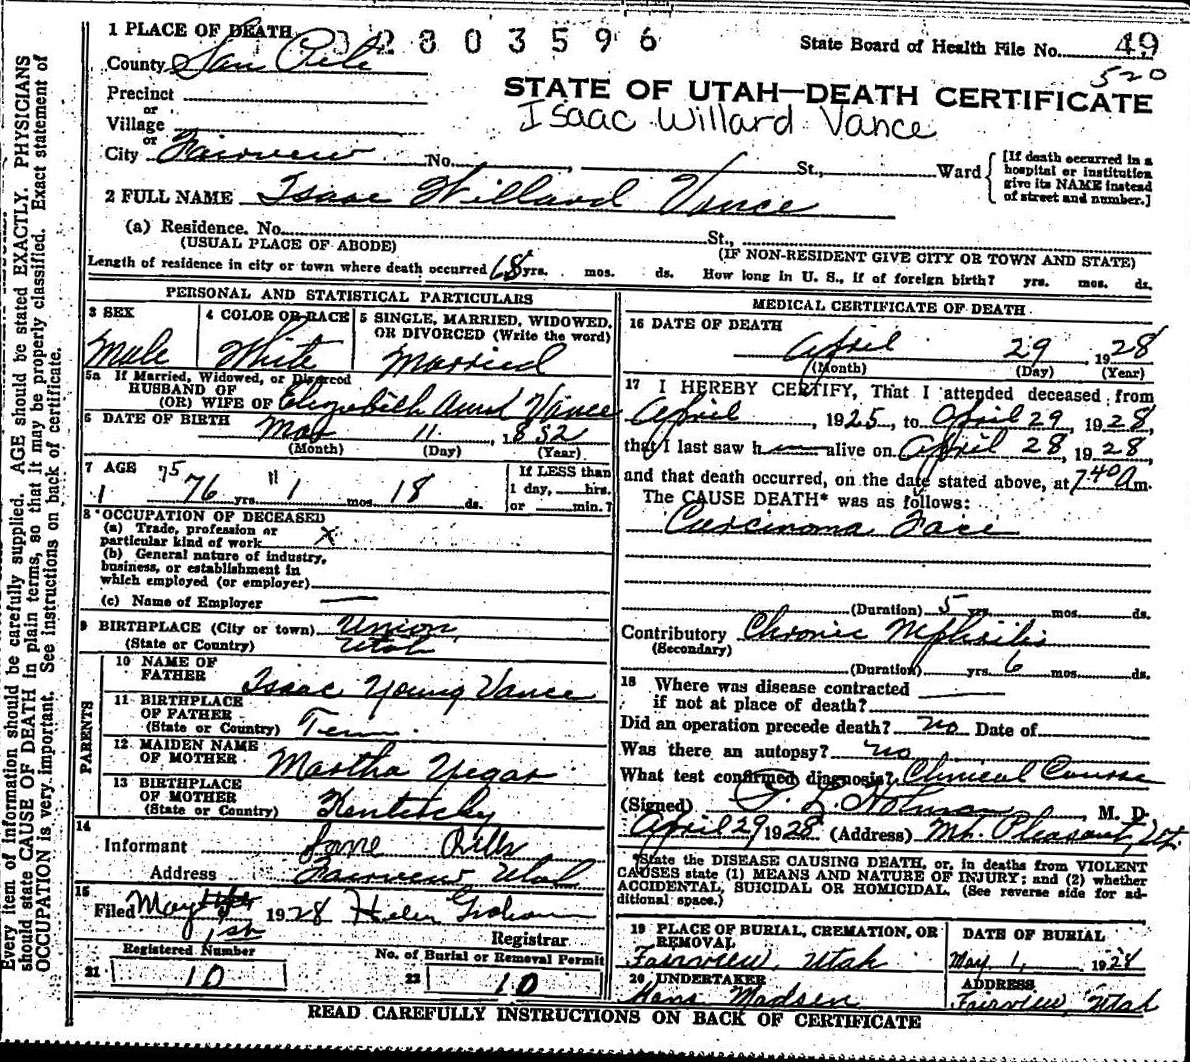 1 PLACE OF DEATH
3 2 8 0 3 5 9 6
State Board of Health File No. 49
County San Pete
520
Precinct
STATE OF UTAH—DEATH CERTIFICATE
or
Village
Isaac Willard Vance
or
City Fairview No. St., Ward
[If death occurred in a
hospital or institution
give its NAME instead
of street and number.]
2 FULL NAME Isaac Willard Vance
(a) Residence. No. St.,
(USUAL PLACE OF ABODE) (IF NON-RESIDENT GIVE CITY OR TOWN AND STATE)
Length of residence in city or town where death occurred 68 yrs. mos. ds. How long in U. S., if of foreign birth? yrs. mos. ds.
PERSONAL AND STATISTICAL PARTICULARS
3 SEX
Male
4 COLOR OR RACE
White
5 SINGLE, MARRIED, WIDOWED,
OR DIVORCED (Write the word)
Married
5a If Married, Widowed, or Divorced
HUSBAND OF
(OR) WIFE OF Elizabeth Vance
6 DATE OF BIRTH
11, 1852
(Month) (Day) (Year)
7 AGE
75 11
1 76 yrs. 1 mos. 18 ds.
If LESS than
1 day, hrs.
or min.?
8 OCCUPATION OF DECEASED
(a) Trade, profession or
particular kind of work X
(b) General nature of industry,
business, or establishment in
which employed (or employer)
(c) Name of Employer —
9 BIRTHPLACE (City or town) Union,
(State or Country) Utah
PARENTS
10 NAME OF
FATHER Isaac Young Vance
11 BIRTHPLACE
OF FATHER
(State or Country) Tenn.
12 MAIDEN NAME
OF MOTHER Martha Yegar
13 BIRTHPLACE
OF MOTHER
(State or Country) Kentucky
14
Informant
Address Fairview Utah
15
Filed May 1st 1928 Helen Graham
Registrar
Registered Number
21 10
No. of Burial or Removal Permit
22 10
MEDICAL CERTIFICATE OF DEATH
16 DATE OF DEATH
April 29, 1928
(Month) (Day) (Year)
17 I HEREBY CERTIFY, That I attended deceased from
April, 1925, to April 29, 1928,
that I last saw h— alive on April 28, 1928,
and that death occurred, on the date stated above, at 7:40 A m.
The CAUSE DEATH* was as follows:
Carcinoma Face
(Duration) 5 yrs. mos. ds.
Contributory Chronic Nephritis
(Secondary)
(Duration) yrs. 6 mos. ds.
18 Where was disease contracted
if not at place of death?
Did an operation precede death? no Date of
Was there an autopsy? no
What test confirmed diagnosis? Clinical Course
(Signed) M. D.
April 29 1928 (Address) Mt. Pleasant, Ut.
*State the DISEASE CAUSING DEATH, or, in deaths from VIOLENT
CAUSES state (1) MEANS AND NATURE OF INJURY; and (2) whether
ACCIDENTAL, SUICIDAL OR HOMICIDAL. (See reverse side for ad-
ditional space.)
19 PLACE OF BURIAL, CREMATION, OR
REMOVAL
Fairview, Utah
DATE OF BURIAL
May 1, 1928
20 UNDERTAKER
Hans Madsen
ADDRESS
Fairview, Utah
READ CAREFULLY INSTRUCTIONS ON BACK OF CERTIFICATE
Every item of information should be carefully supplied. AGE should be stated EXACTLY. PHYSICIANS
should state CAUSE OF DEATH in plain terms, so that it may be properly classified. Exact statement of
OCCUPATION is very important. See instructions on back of certificate.